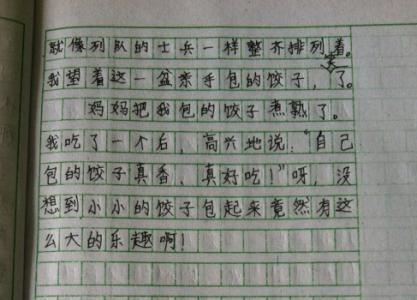 就像列队的士兵一样整齐排列着。
我望着这一盆亲手包的饺子，笑了。
妈妈把我包的饺子煮熟了。
我吃了一个后，高兴地说：“自己
包的饺子真香，真好吃！”呀，没
想到小小的饺子包起来竟然有这
么大的乐趣啊！